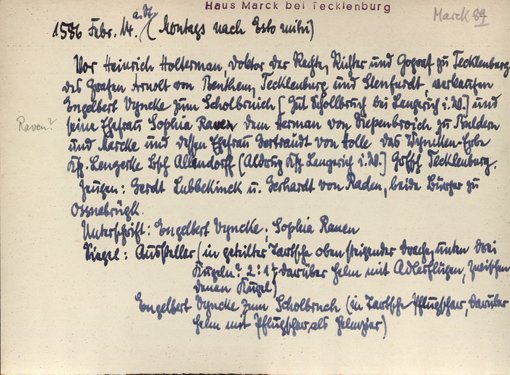 Haus Marck bei Tecklenburg
Marck 84
1586 Febr. 14. a. St. (Montags nach Esto mihi)
Vor Heinrich Holterman Doktor der Rechte, Richter und Gograf zu Tecklenburg
des Grafen Arnolt von Benthem, Tecklenburg und Stenfurdt, verkaufen
Engelbert Vyncke zum Scholbruch [Gut Schollbruch bei Lengerich i.W.] und
Raven?
seine Ehefrau Sophia Raven dem Herman von Diepenbroich zu Buldern
und Marcke und dessen Ehefrau Gertraudt von Tolle das Erbe
Ksp. Lengerke Bsch. Allendorff [Aldrup Ksp. Lengerich i.W.] Gfsch. Tecklenburg.
Zeugen: Gerdt Lubbekinck u. Gerhardt von Raden, beide Bürger zu
Ossnabrügk.
Unterschrift: Engelbert Vyncke; Sophia Raven
Siegel: Aussteller (in geteilter Tartsche oben steigender Drache, unten drei
Kugeln: 2:1; darüber Helm mit Adlerflügen, zwischen
denen Kugel)
Engelbert Vyncke zum Scholbruch (in Tartsche Pflugschar, darüber
Helm mit Pflugschar als Helmzier)